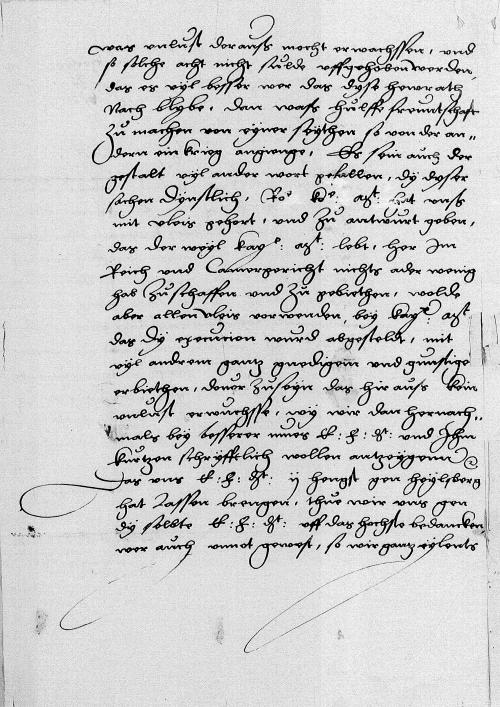 was unlust doraus mocht erwachssen, und
so solche acht nicht sulde uffgehoben werden,
das es vyl besser wer das dyse heyrath
nach blybe, dan wass hulffe freuntschaft
zu machen von eyner seythen so von der an=
dern ein krieg angienge, Es sein auch der
gestalt vyl ander wort gefallen, dy dyser
sachen dynstlich, Ro: Ko: Mt: hat unss
mit vleis gehort, und zu antwurt geben,
das der weyl Kay: Mt: lebt, her Im
Reich und Camergericht nichts ader wenig
hab zuschaffen und zu gebiethen, wolde
aber allen vleis vorwenden, bey Kay: Mt
das dy execution wurd abgestelt, mit
vyl andrem gantz gnedigem und gunstige
erbiethen, doruor zuseyn das hir auss kein
unlust erwuchsse, wy wir dan hernach=
mals bey besserer mues E: F: D: und Ihm
kurtzen schryfftlich wollen antzeygenn
Das uns E: F: D: ij hengst gen heylsberg
hat lassen brengen, thue wir uns gen
dy selbte E: F: D: uff das hochste bedancken
wer auch unnot gewest, so wir gantz eylents